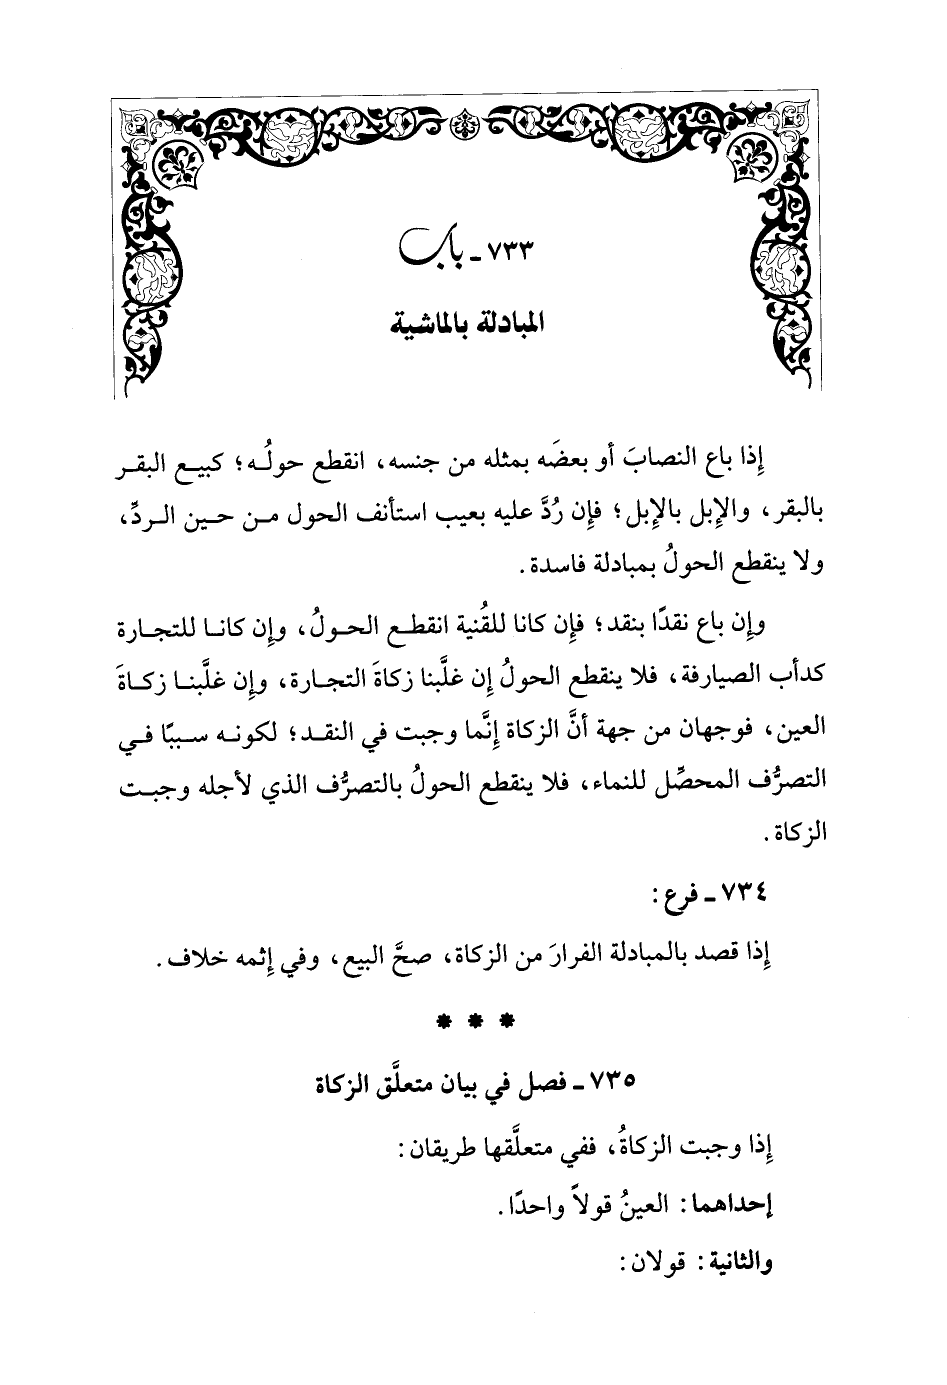 ٧٣٣ - باب
المبادلة بالماشية
إذا باع النصابَ أو بعضَه بمثله من جنسه، انقطع حولُه؛ كبيع البقر
بالبقر، والإبل بالإبل؛ فإن رُدَّ عليه بعيب استأنف الحول من حين الردِّ،
ولا ينقطع الحولُ بمبادلة فاسدة.
وإن باع نقدًا بنقد؛ فإن كانا للقُنية انقطع الحولُ، وإن كانا للتجارة
كدأب الصيارفة، فلا ينقطع الحولُ إن غلَّبنا زكاةَ التجارة، وإن غلَّبنا زكاةَ
العين، فوجهان من جهة أنَّ الزكاة إنَّما وجبت في النقد؛ لكونه سببًا في
التصرُّف المحصِّل للنماء، فلا ينقطع الحولُ بالتصرُّف الذي لأجله وجبت
الزكاة.
٧٣٤ - فرع:
إذا قصد بالمبادلة الفرارَ من الزكاة، صحَّ البيع، وفي إثمه خلاف.
* * *
٧٣٥ - فصل في بيان متعلَّق الزكاة
إذا وجبت الزكاةُ، ففي متعلَّقها طريقان:
إحداهما: العينُ قولاً واحدًا.
والثانية: قولان: